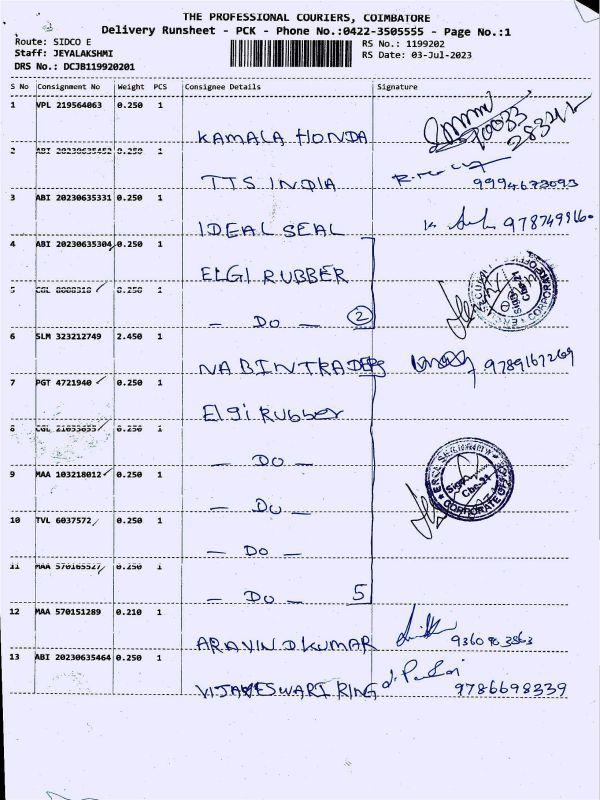 THE PROFESSIONAL COURIERS, COIMBATORE
Delivery Runsheet - PCK - Phone No.:0422-3505555 - Page No.:1
Route: SIDCO E
RS No.: 1199202
Staff: JEYALAKSHMI
RS Date: 03-Jul-2023
DRS No.: DCJB119920201
S No Consignment No Weight PCS Consignee Details Signature
1 VPL 219564063 0.250 1
KAMALA HONDA
2 ABI 20230635452 0.250 1
TTS INDIA 9994673093
3 ABI 20230635331 0.250 1
IDEAL SEAL
4 ABI 20230635304 0.250 1
ELGI RUBBER
5 1
- DO - 2
6 SLM 323212749 2.450 1
NABINTRADERS 9789167269
7 PGT 4721940 0.250 1
Elgi Rubber
8 0.250 1
- DO -
9 MAA 103218012 0.250 1
- DO -
10 TVL 6037572 0.250 1
- DO -
11 MAA 570165527 0.250 1
- DO - 5
12 MAA 570151289 0.210 1
ARAVIND KUMAR
13 ABI 20230635464 0.250 1
VIJAYESWARI RING 9786698339
CORPORATE OFFICE